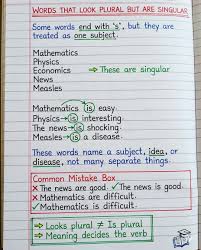 WORDS THAT LOOK PLURAL BUT ARE SINGULAR
Some words end with 's', but they are
treated as one subject.
Mathematics
Physics
Economics ⇒ These are singular
News
Measles
Mathematics is easy.
Physics→is interesting.
The news→is shocking.
Measles→is a disease.
These words name a subject, idea, or
disease, not many separate things.
Common Mistake Box
✗ The news are good. ✓ The news is good.
✗ Mathematics are difficult.
✓ Mathematics is difficult.
⇒ Looks plural ≠ Is plural
⇒ Meaning decides the verb